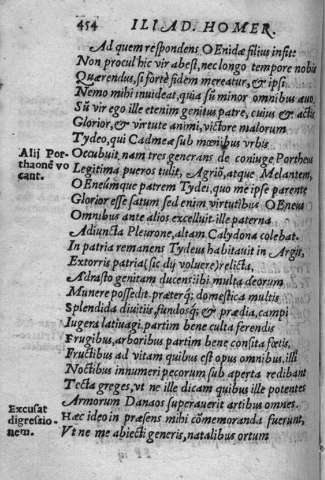 454 ILIAD. HOMER.
Ad quem respondens OEnidæ filius infit:
Non procul hic vir abest, nec longo tempore nobis
Quærendus, si fortè fidem mereatur, & ipsi
Nemo mihi inuideat, quia sū minor omnibus æuo,
Sū vir ego ille etenim genitus patre, cuius & actis
Glorior, & virtute animi, victore malorum
Tydeo, qui Cadmea sub mœnibus vrbis
Alij Por-
thaonē vo
cant.
Occubuit, nam tres generans de coniuge Portheus
Legitima pueros tulit, Agriō, atque Melantem,
OEneúmque patrem Tydei, quo me ipse parente
Glorior esse satum sed enim virtutibus OEneus
Omnibus ante alios excelluit ille paterna
Adiuncta Pleurone, altam Calydona colebat.
In patria remanens Tydeus habitauit in Argis,
Extorris patria (sic dij voluere) relicta,
Adrasto genitam ducens ibi multa deorum
Munere possedit præterq; domestica multis
Splendida diuitijs, fundosq; & prædia, campi
Iugera latiuagi, partim bene culta ferendis
Frugibus, arboribus partim bene consita fœtis,
Fructibus ad vitam quibus est opus omnibus, illi
Noctibus innumeri pecorum sub aperta redibant
Tecta greges, vt ne ille dicam quibus ille potentes
Armorum Danaos superauerit artibus omnes.
Excusat
digressio-
nem.
Hæc ideo in præsens mihi cōmemoranda fuerunt,
Vt ne me abiecti generis, natalibus ortum